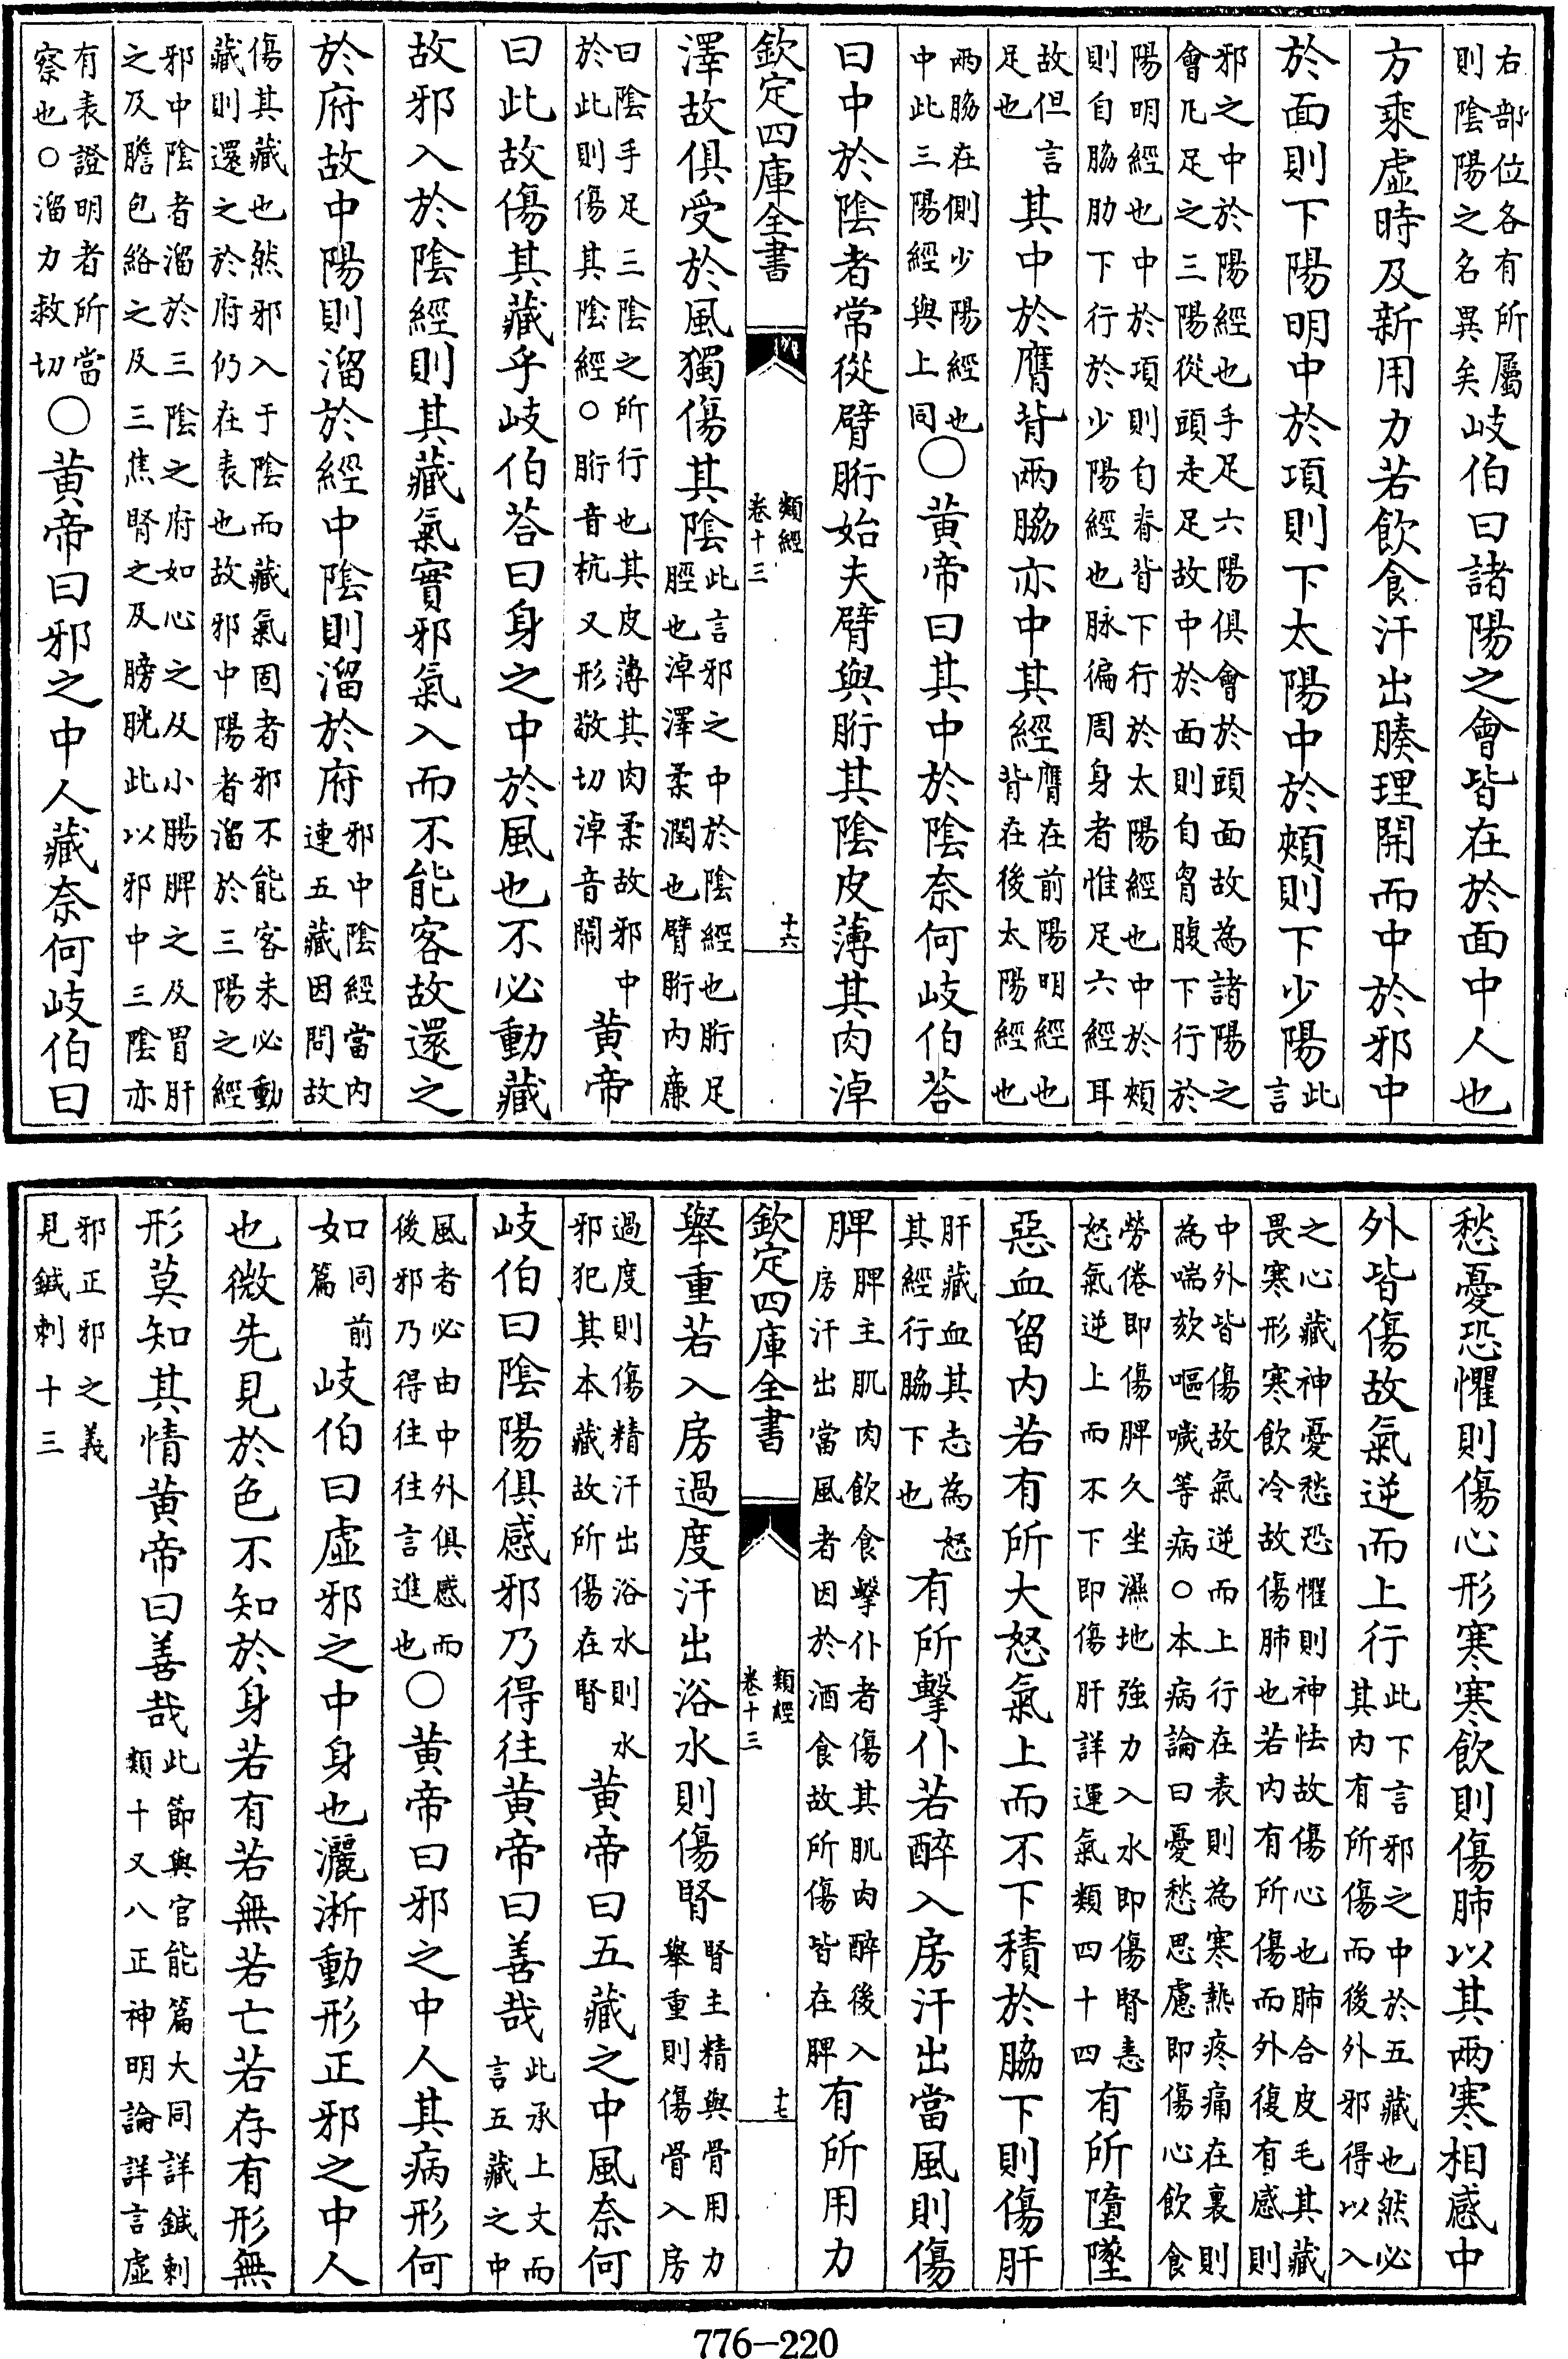 右部位各有所屬
則陰陽之名異矣岐伯曰諸陽之會皆在於面中人也
方乘虛時及新用力若飲食汗出腠理開而中於邪中
於面則下陽明中於項則下太陽中於頰則下少陽此
言
邪之中於陽經也手足六陽俱會於頭面故為諸陽之
會凡足之三陽從頭走足故中於面則自胷腹下行於
陽明經也中於項則自脊背下行於太陽經也中於頰
則自脇肋下行於少陽經也脉徧周身者惟足六經耳
故但言
足也其中於膺背兩脇亦中其經膺在前陽明經也
背在後太陽經也
兩脇在側少陽經也
中此三陽經與上同○黃帝曰其中於陰奈何岐伯荅
曰中於陰者常從臂胻始夫臂與胻其陰皮薄其肉淖
欽定四庫全書 類經
卷十三 十六
澤故俱受於風獨傷其陰此言邪之中於陰經也胻足
脛也淖澤柔潤也臂胻内廉
曰陰手足三陰之所行也其皮薄其肉柔故邪中
於此則傷其陰經○胻音杭又形敬切淖音鬧黃帝
曰此故傷其藏乎岐伯荅曰身之中於風也不必動藏
故邪入於陰經則其藏氣實邪氣入而不能客故還之
於府故中陽則溜於經中陰則溜於府邪中陰經當内
連五藏因問故
傷其藏也然邪入于陰而藏氣固者邪不能客未必動
藏則還之於府仍在表也故邪中陽者溜於三陽之經
邪中陰者溜於三陰之府如心之及小腸脾之及胃肝
之及膽包絡之及三焦腎之及膀胱此以邪中三陰亦
有表證明者所當
察也○溜力救切○黃帝曰邪之中人藏奈何岐伯曰
愁憂恐懼則傷心形寒寒飲則傷肺以其兩寒相感中
外皆傷故氣逆而上行此下言邪之中於五藏也然必
其内有所傷而後外邪得以入
之心藏神憂愁恐懼則神怯故傷心也肺合皮毛其藏
畏寒形寒飲冷故傷肺也若内有所傷而外復有感則
中外皆傷故氣逆而上行在表則為寒熱疼痛在裏則
為喘欬嘔噦等病○本病論曰憂愁思慮即傷心飲食
勞倦即傷脾久坐濕地強力入水即傷腎恚
怒氣逆上而不下即傷肝詳運氣類四十四有所墮墜
惡血留内若有所大怒氣上而不下積於脇下則傷肝
肝藏血其志為怒
其經行脇下也有所擊仆若醉入房汗出當風則傷
脾脾主肌肉飲食擊仆者傷其肌肉醉後入
房汗出當風者因於酒食故所傷皆在脾有所用力
欽定四庫全書 類經
卷十三 十七
舉重若入房過度汗出浴水則傷腎腎主精與骨用力
舉重則傷骨入房
過度則傷精汗出浴水則水
邪犯其本藏故所傷在腎黃帝曰五藏之中風奈何
岐伯曰陰陽俱感邪乃得往黃帝曰善哉此承上文而
言五藏之中
風者必由中外俱感而
後邪乃得往往言進也○黃帝曰邪之中人其病形何
如同前
篇岐伯曰虛邪之中身也灑淅動形正邪之中人
也微先見於色不知於身若有若無若亡若存有形無
形莫知其情黃帝曰善哉此節與官能篇大同詳鍼刺
類十又八正神明論詳言虛
邪正邪之義
見鍼刺十三
776-220